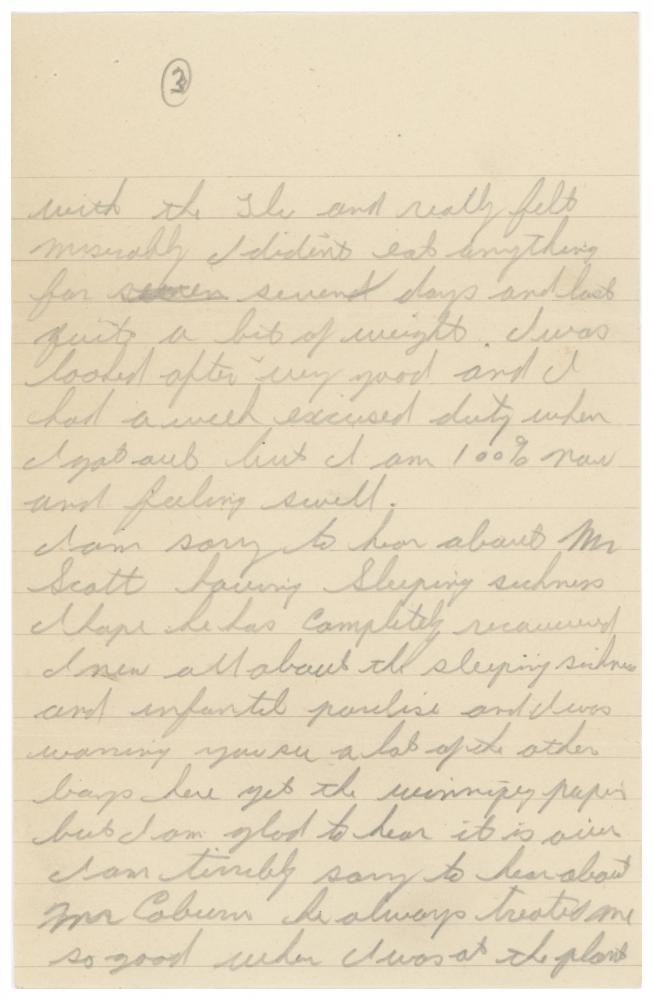 2
with the Flu and really felt
miserably I dident eat anything
for seven days and lost
quite a bit of weight. I was
looked after very good and I
had a week excused duty when
I got out but I am 100% now
and feeling swell.
I am sorry to hear about Mr
Scott having Sleeping sickness
I hope he has completely recovered
I new all about the sleeping sickness
and infantil and I was
you see a lot of the other
boys here get the winnipeg papers
but I am glad to hear it is over
I am terribly sorry to hear about
Mr Coburn he always treated me
so good when I was at the plant